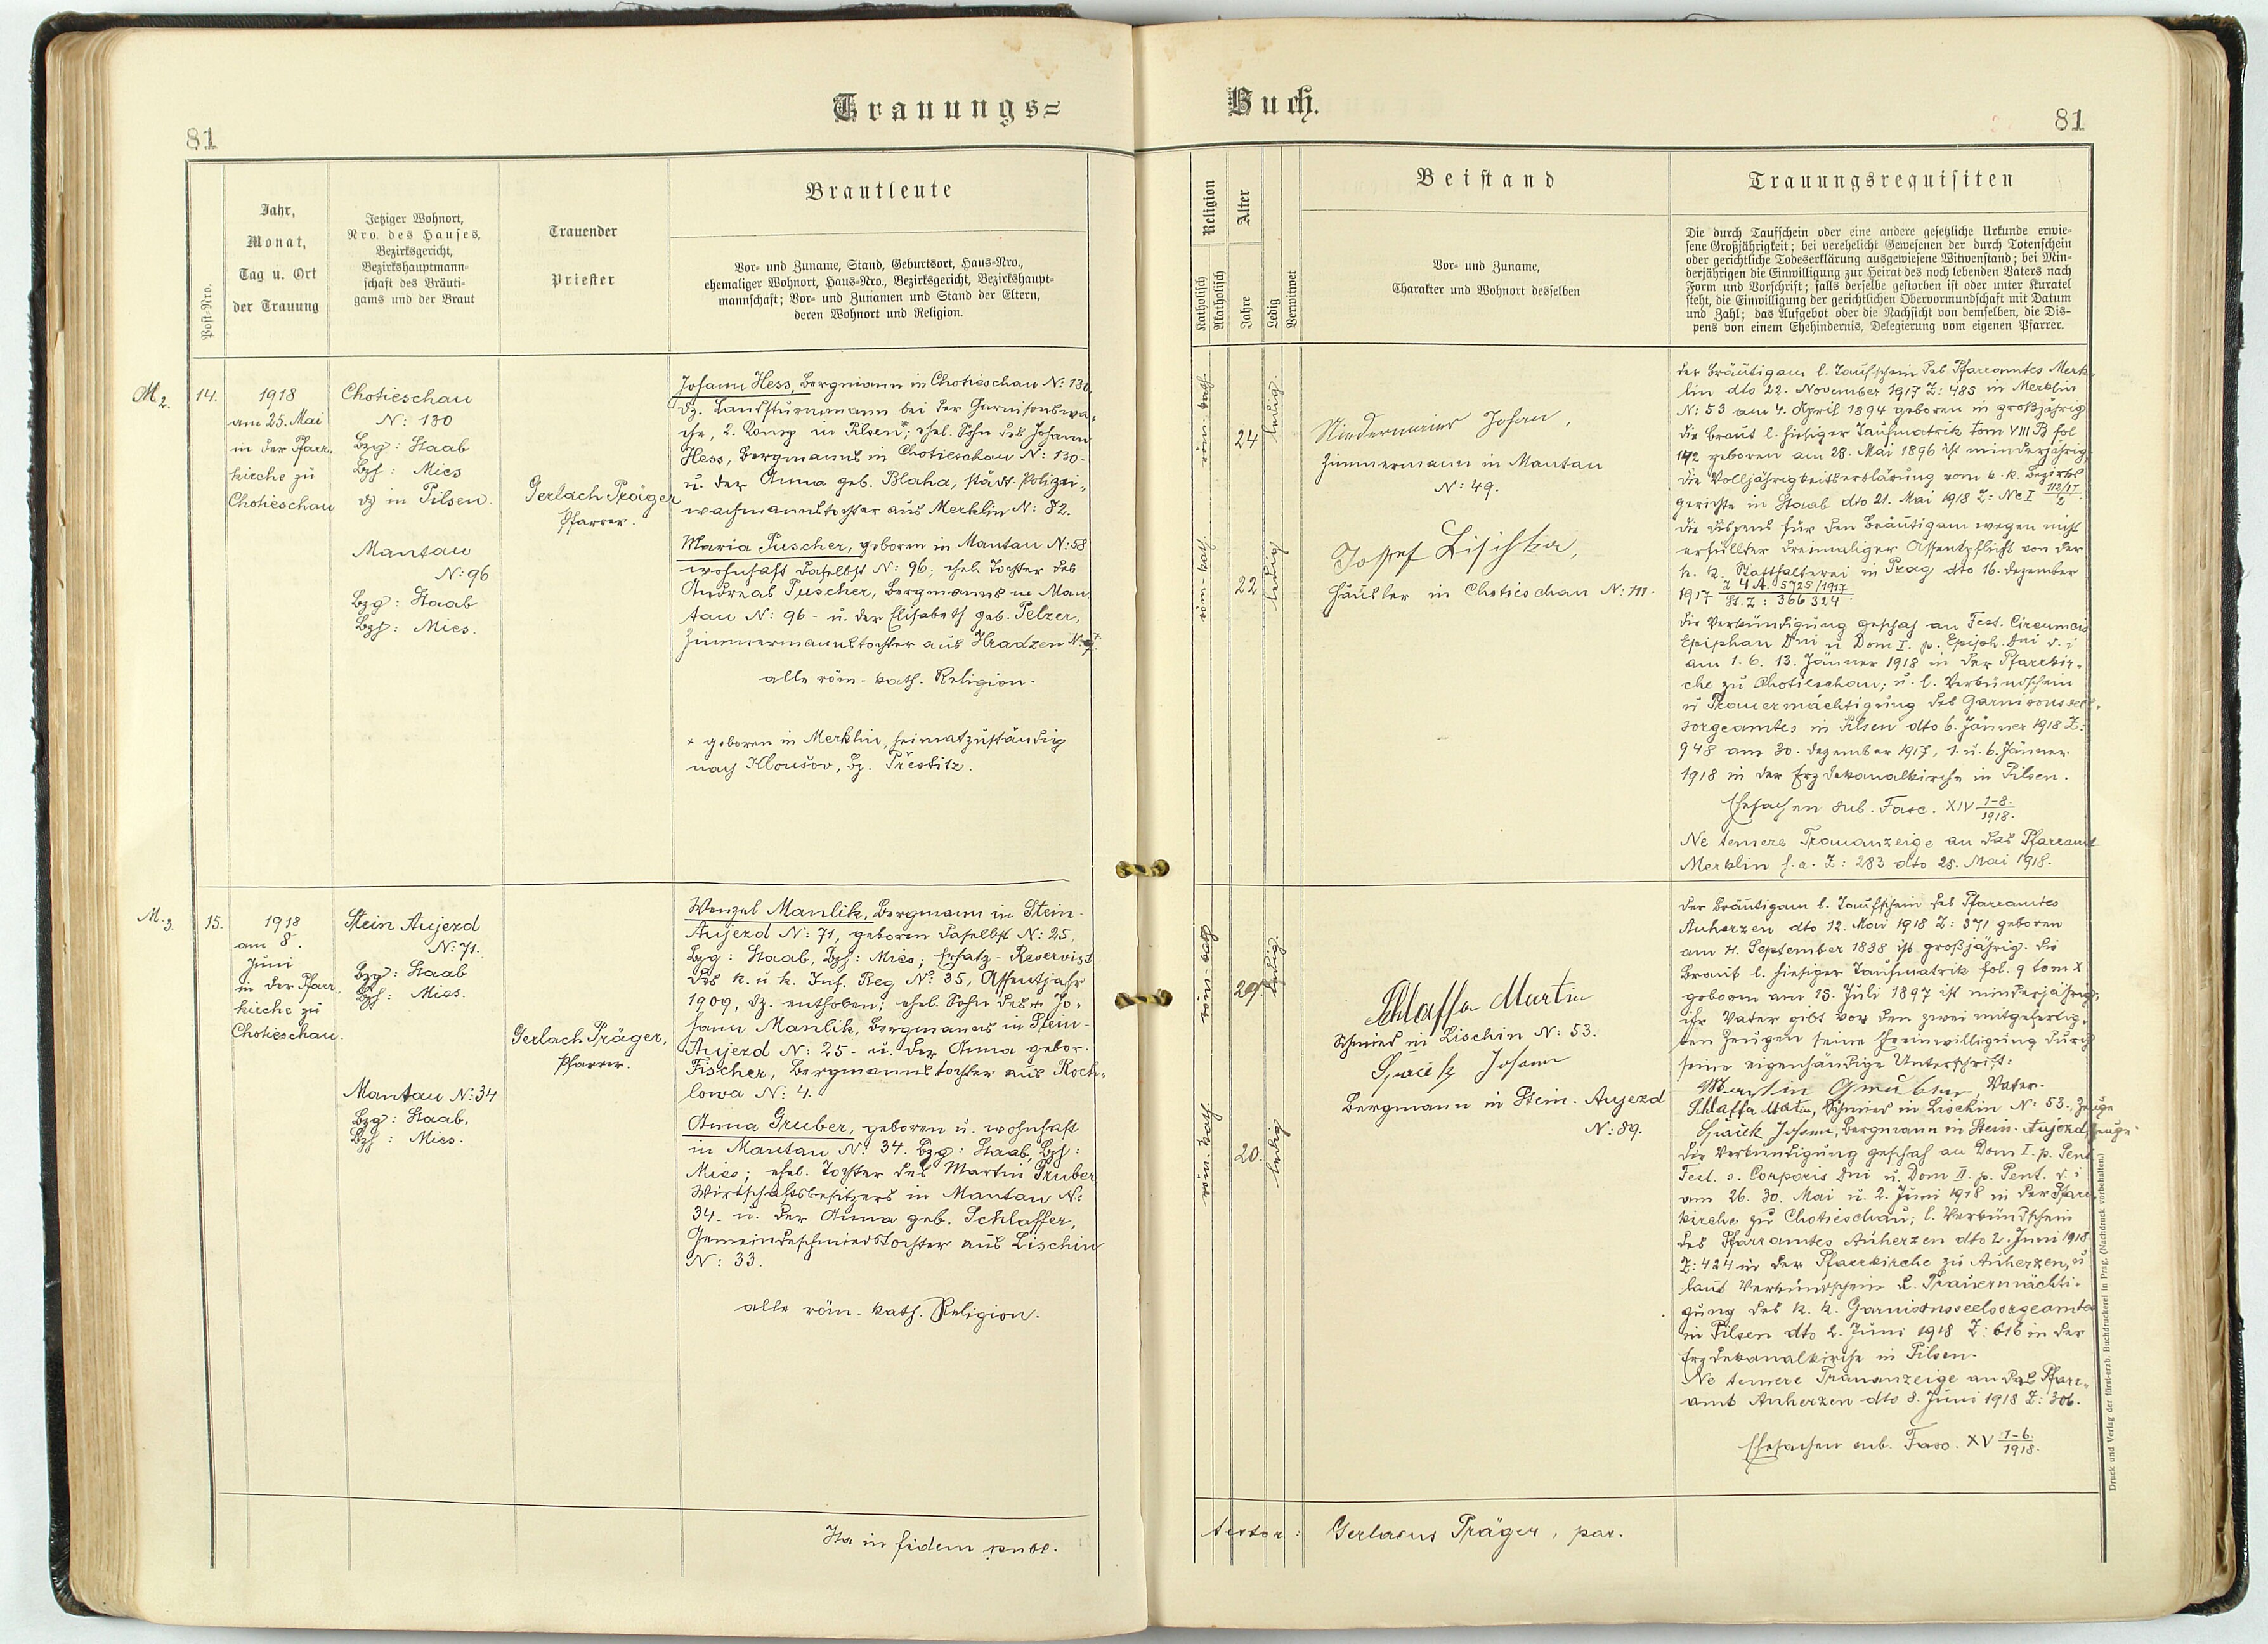 Trauungs=
81
Post-Nro.
Jahr,
Monat,
Tag u. Ort
der Trauung
Jetziger Wohnort,
Nro. des Hauses,
Bezirksgericht,
Bezirkshauptmann-
schaft des Bräuti-
gams und der Braut
Trauender
Priester
Brautleute
Vor- und Zuname, Stand, Geburtsort, Haus-Nro.,
ehemaliger Wohnort, Haus-Nro., Bezirksgericht, Bezirkshaupt-
mannschaft; Vor- und Zunamen und Stand der Eltern,
deren Wohnort und Religion.
M2.
14.
1918
am 25. Mai
in der Pfarr-
kirche zu
Chotieschau
Chotieschau
N: 130
Bzg: Staab
Bzh: Mies
dz in Pilsen.
Mantau
N: 96
Bzg: Staab
Bzh: Mies.
Gerlach Präger
Pfarrer.
Johann Hess, Bergmann in Chotieschau N: 130,
dz. Landsturmmann bei der Garnisonswa-
che, 2. Komp in Pilsen*; ehel. Sohn des Johann
Hess, Bergmanns in Chotieschau N: 130-
u. der Anna geb. Blaha, städt. Polizei-
wachmannstochter aus Merklin N: 82.
Maria Puscher, geboren in Mantau N: 58
wohnhaft daselbst N: 96; ehel. Tochter des
Andreas Puscher, Bergmanns in Man
tau N: 96 - u. der Elisabeth geb. Pelzer,
Zimmermannstochter aus Hradzen N:
alle röm.-kath. Religion.
* geboren in Merklin, heimatzuständig
nach Kloušov, Bz. Přestitz.
M.3.
15.
1918
am 8.
Juni
in der Pfarr-
kirche zu
Chotieschau.
Stein Aujezd
N: 71.
Bzg: Staab
Bzh: Mies.
Mantau N: 34
Bzg: Staab,
Bzh: Mies.
Gerlach Präger,
Pfarrer.
Wenzel Manlik, Bergmann in Stein-
Aujezd N: 71, geboren daselbst N: 25,
Bzg: Staab, Bzh: Mies; Ersatz-Reservist
des k. u. k. Inf. Reg No: 35, Assentjahr
1909, dz. enthoben; ehel. Sohn des + Jo-
hann Manlik, Bergmanns in Stein-
Aujezd N: 25 - u. der Anna gebor.
Fischer, Bergmannstochter aus Roch-
lowa N: 4.
Anna Gruber, geboren u. wohnhaft
in Mantau N: 34. Bzg: Staab, Bzh:
Mies; ehel. Tochter des Martin Gruber
Wirtschaftsbesitzers in Mantau N:
34 - u. der Anna geb. Schlaffer,
Gemeindeschmiedstochter aus Lischin
N: 33.
alle röm.-kath. Religion.
Ita in fidem publ.
Buch.
81
Religion
Katholisch
Akatholisch
Alter
Jahre
Ledig
Verwitwet
Beistand
Vor- und Zuname,
Charakter und Wohnort desselben
Trauungsrequisiten
Die durch Taufschein oder eine andere gesetzliche Urkunde erwie-
sene Großjährigkeit; bei verehelicht Gewesenen der durch Totenschein
oder gerichtliche Todeserklärung ausgewiesene Witwenstand; bei Min-
derjährigen die Einwilligung zur Heirat des noch lebenden Vaters nach
Form und Vorschrift; falls derselbe gestorben ist oder unter Kuratel
steht, die Einwilligung der gerichtlichen Obervormundschaft mit Datum
und Zahl; das Aufgebot oder die Nachsicht von demselben, die Dis-
pens von einem Ehehindernis, Delegierung vom eigenen Pfarrer.
röm.-kath.
24
ledig.
röm.-kath.
22
ledig
Niedermeier Johan,
Zimmermann in Mantau
N: 49.
Josef Lischka,
Häusler in Chotieschau N: 111.
der Bräutigam l. Taufschein des Pfarramtes Merk-
lin dto 22. November 1917 Z: 485 in Merklin
N: 53 am 4. April 1894 geboren ist großjährig
die Braut l. hiesiger Taufmatrik tom VIII B fol
142 geboren am 28. Mai 1896 ist minderjährig;
die Volljährigkeitserklärung vom k. k. Bezirks
gerichte in Staab dto 21. Mai 1918 Z: Nc I 112/17/2
die Dispens für den Bräutigam wegen nicht
erfüllter dreimaliger Assentpflicht von der
k. k. Statthalterei in Prag dto 16. Dezember
1917 Z 4 A. 5725/1917
St. Z: 366324.
die Verkündigung geschah an Fest. Circumcis
Epiphan Dni u Dom I. p. Epiph. Dni d. i
am 1. 6. 13. Jänner 1918 in der Pfarrkir-
che zu Chotieschau; u. l. Verkündschein
u Trauermächtigung des Garnisonsseel-
sorgeamtes in Pilsen dto 6. Jänner 1918 Z:
948 am 30. Dezember 1917, 1. u. 6. Jänner
1918 in der Erzdekanalkirche in Pilsen.
Ehesachen sub. Fasc. XIV 1-8./1918.
Ne temere Trauanzeige an das Pfarramt
Merklin h. a. Z: 283 dto 25. Mai 1918.
röm.-kath.
29.
ledig.
röm.-kath.
20.
ledig
Schlaffer Martin
Schmied in Lischin N: 53.
Johann
Bergmann in Stein-Aujezd
N: 89.
der Bräutigam l. Taufschein des Pfarramtes
Auherzen dto 12. Mai 1918 Z: 371 geboren
am 4. September 1888 ist großjährig. die
Braut l. hiesiger Taufmatrik fol. 9 tom X
geboren am 15. Juli 1897 ist minderjährig;
ihr Vater gibt vor den zwei mitgefertig-
ten Zeugen seine Eheeinwilligung durch
seine eigenhändige Unterschrift:
Martin Gruber Vater.
Schlaffer Martin, Schmied in Lischin N: 53. Zeuge
Johann, Bergmann in Stein-Aujezd, Zeuge.
die Verkündigung geschah an Dom I. p. Pent
Fest. s. Corporis Dni u. Dom II. p. Pent. d. i
am 26. 30. Mai u. 2. Juni 1918 in der Pfarr-
kirche zu Chotieschau; l. Verkündschein
des Pfarramtes Auherzen dto 2. Juni 1918
Z: 424 in der Pfarrkirche zu Auherzen, u
laut Verkündschein u. Trauermächti-
gung des k. k. Garnisonsseelsorgeamtes
in Pilsen dto 2. Juni 1918 Z: 616 in der
Erzdekanalkirche in Pilsen.
Ne temere Trauanzeige an das Pfarr-
amt Auherzen dto 8. Juni 1918 Z: 306.
Ehesachen sub. Fasc. XV 1-6./1918.
testor: Gerlacus Präger, par.
Druck und Verlag der fürst-erzb. Buchdruckerei in Prag. (Nachdruck vorbehalten.)